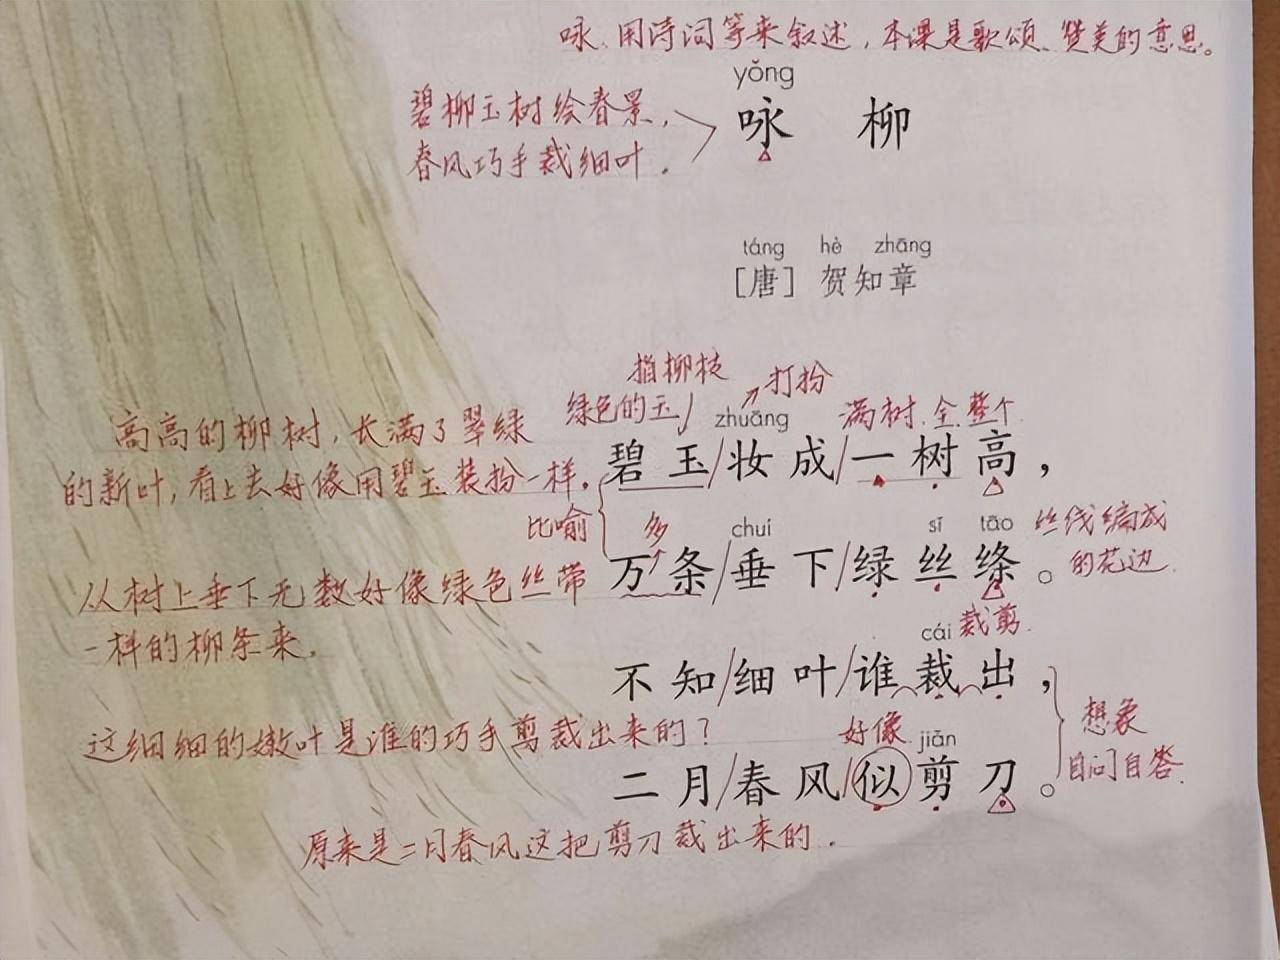 咏、用诗词等来叙述，本课是歌颂、赞美的意思。
yǒng
碧柳玉树绘春景，
春风巧手裁细叶。
咏 柳
táng hè zhāng
[唐] 贺知章
指柳枝
打扮
绿色的玉
zhuāng
满树、全、整个
高高的柳树，长满了翠绿
的新叶，看上去好像用碧玉装扮一样。
碧玉/妆成/一树高，
比喻
多
chuí
sī tāo
丝线编成
的花边
万条/垂下/绿丝绦。
从树上垂下无数好像绿色丝带
一样的柳条来。
cái 裁剪
不知/细叶/谁裁出，
这细细的嫩叶是谁的巧手剪裁出来的？
好像 jiǎn
二月/春风/似剪刀。
想象
自问自答
原来是二月春风这把剪刀裁出来的。